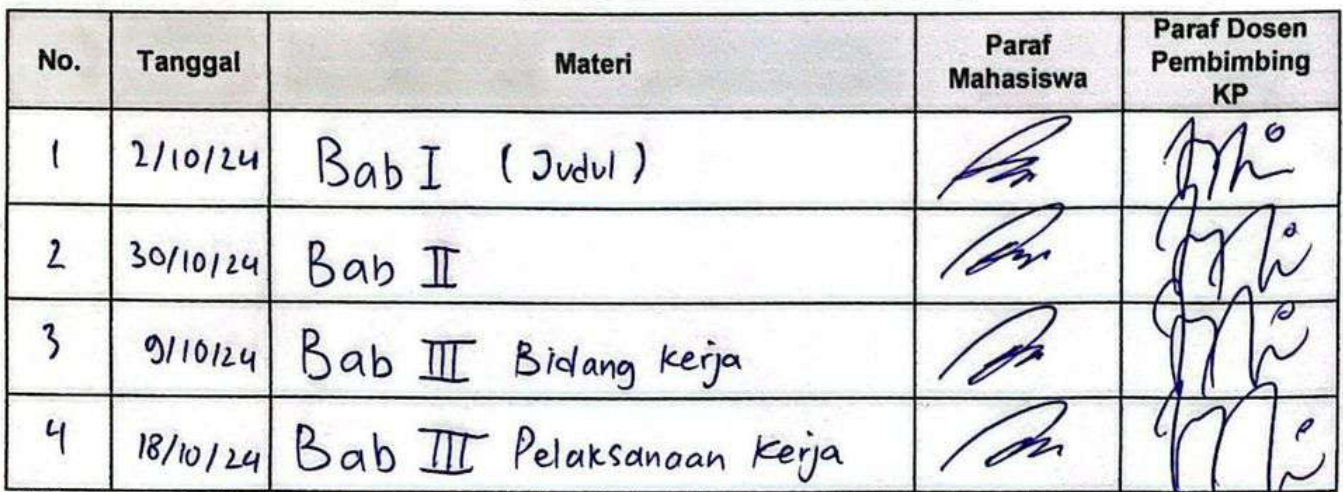 No. Tanggal Materi Paraf Mahasiswa Paraf Dosen Pembimbing KP
1 2/10/24 Bab I (Judul)
2 30/10/24 Bab II
3 9/10/24 Bab III Bidang kerja
4 18/10/24 Bab III Pelaksanaan kerja